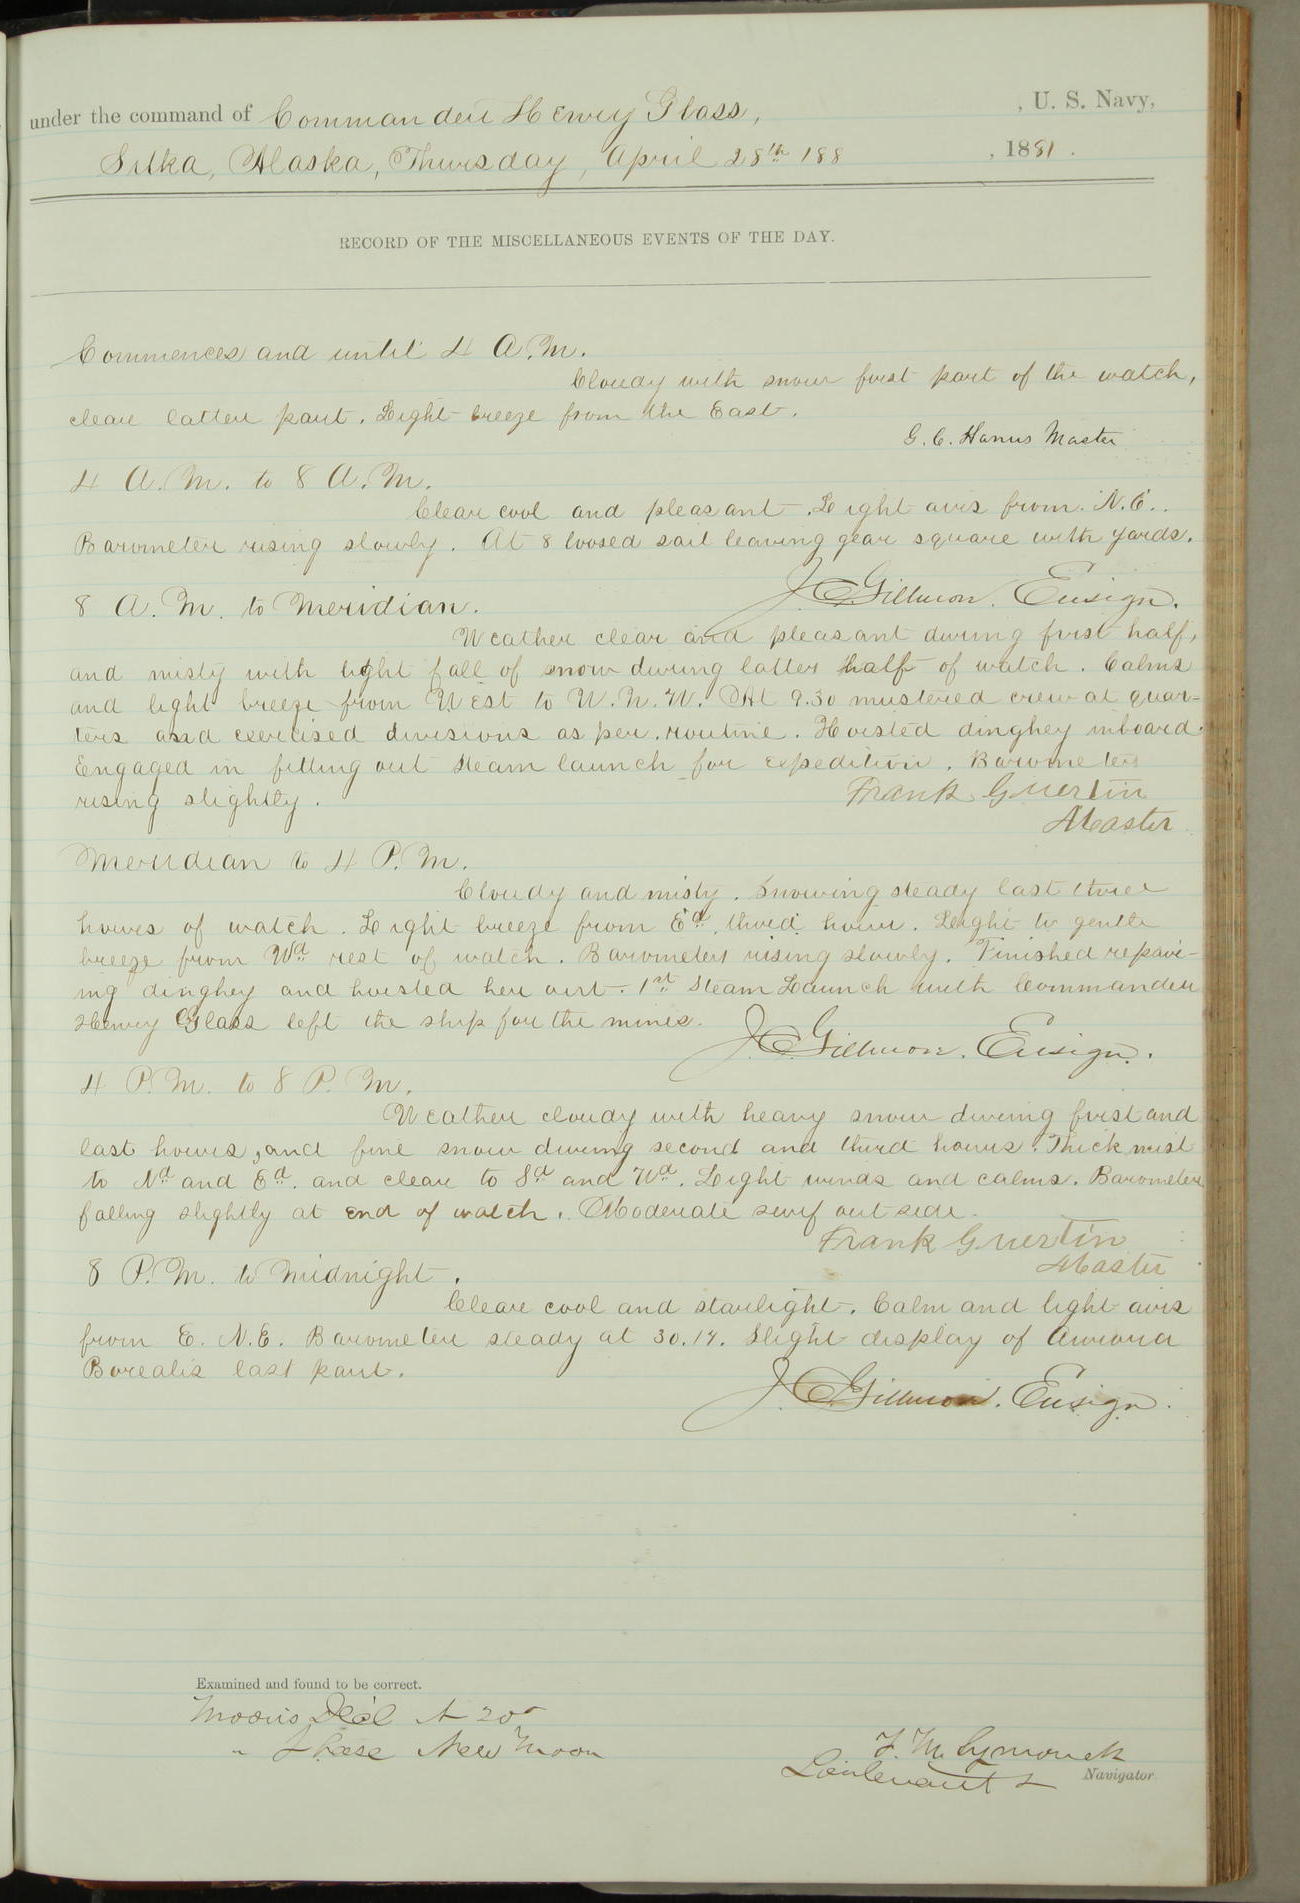 under the command of Commander Henry Glass, , U. S. Navy,
Sitka, Alaska, Thursday, April 28th 188 , 1881.
RECORD OF THE MISCELLANEOUS EVENTS OF THE DAY.
Commences and until 4 A.M.
Cloudy with snow first part of the watch,
clear latter part. Light breeze from the East.
G. C. Hanus Master
4 A.M. to 8 A.M.
Clear cool and pleasant. Light airs from N.E..
Barometer rising slowly. At 8 loosed sail leaving gear square with yards.
J. C. Gillmore. Ensign.
8 A.M. to Meridian.
Weather clear and pleasant during first half,
and misty with light fall of snow during latter half of watch. Calms
and light breeze from West to W.N.W. At 9.30 mustered crew at quar-
ters and exercised divisions as per routine. Hoisted dinghey inboard.
Engaged in fitting out steam launch for expedition. Barometer
rising slightly.
Frank Guertin
Master
Meridian to 4 P.M.
Cloudy and misty. Snowing steady last three
hours of watch. Light breeze from Ed. third hour. Light to gentle
breeze from Wd rest of watch. Barometer rising slowly. Finished repair-
ing dinghey and hoisted her out. 1st Steam Launch with Commander
Henry Glass left the ship for the mines.
J. C. Gillmore. Ensign.
4 P.M. to 8 P.M.
Weather cloudy with heavy snow during first and
last hours, and fine snow during second and third hours. Thick mist
to Nd and Ed. and clear to Sd and Wd. Light winds and calms. Barometer
falling slightly at end of watch. Moderate surf outside.
Frank Guertin
Master
8 P.M. to Midnight.
Clear cool and starlight. Calm and light airs
from E.N.E. Barometer steady at 30.14. Slight display of Aurora
Borealis last part.
J. C. Gillmore. Ensign.
Examined and found to be correct.
Moon's Decl N 20°
" Phase New Moon
F. M. Symonds
Lieutenant & Navigator.